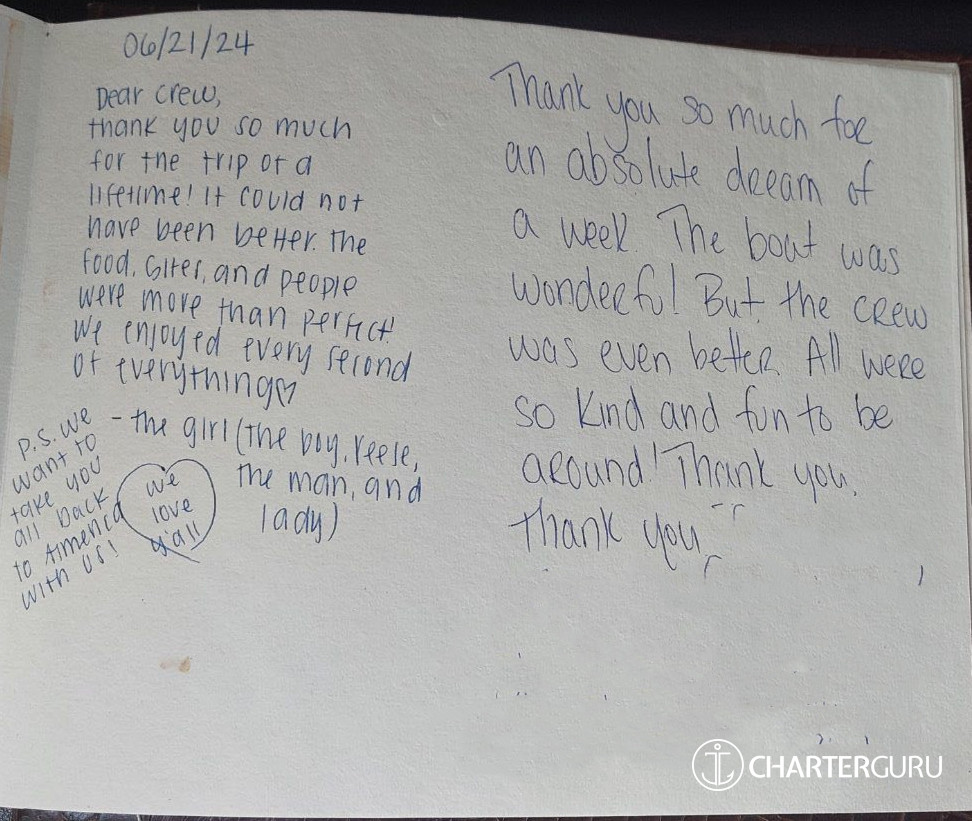 06/21/24
Dear crew,
thank you so much
for the trip of a
lifetime! It could not
have been better. The
food, sites, and people
were more than perfect!
We enjoyed every second
of everything♡
- the girl (the boy, reese,
the man, and
lady)
P.S. we
want to
take you
all back
to America
with us!
we
love
y'all
Thank you so much for
an absolute dream of
a week. The boat was
wonderful! But the crew
was even better. All were
so kind and fun to be
around! Thank you,
thank you
CHARTERGURU